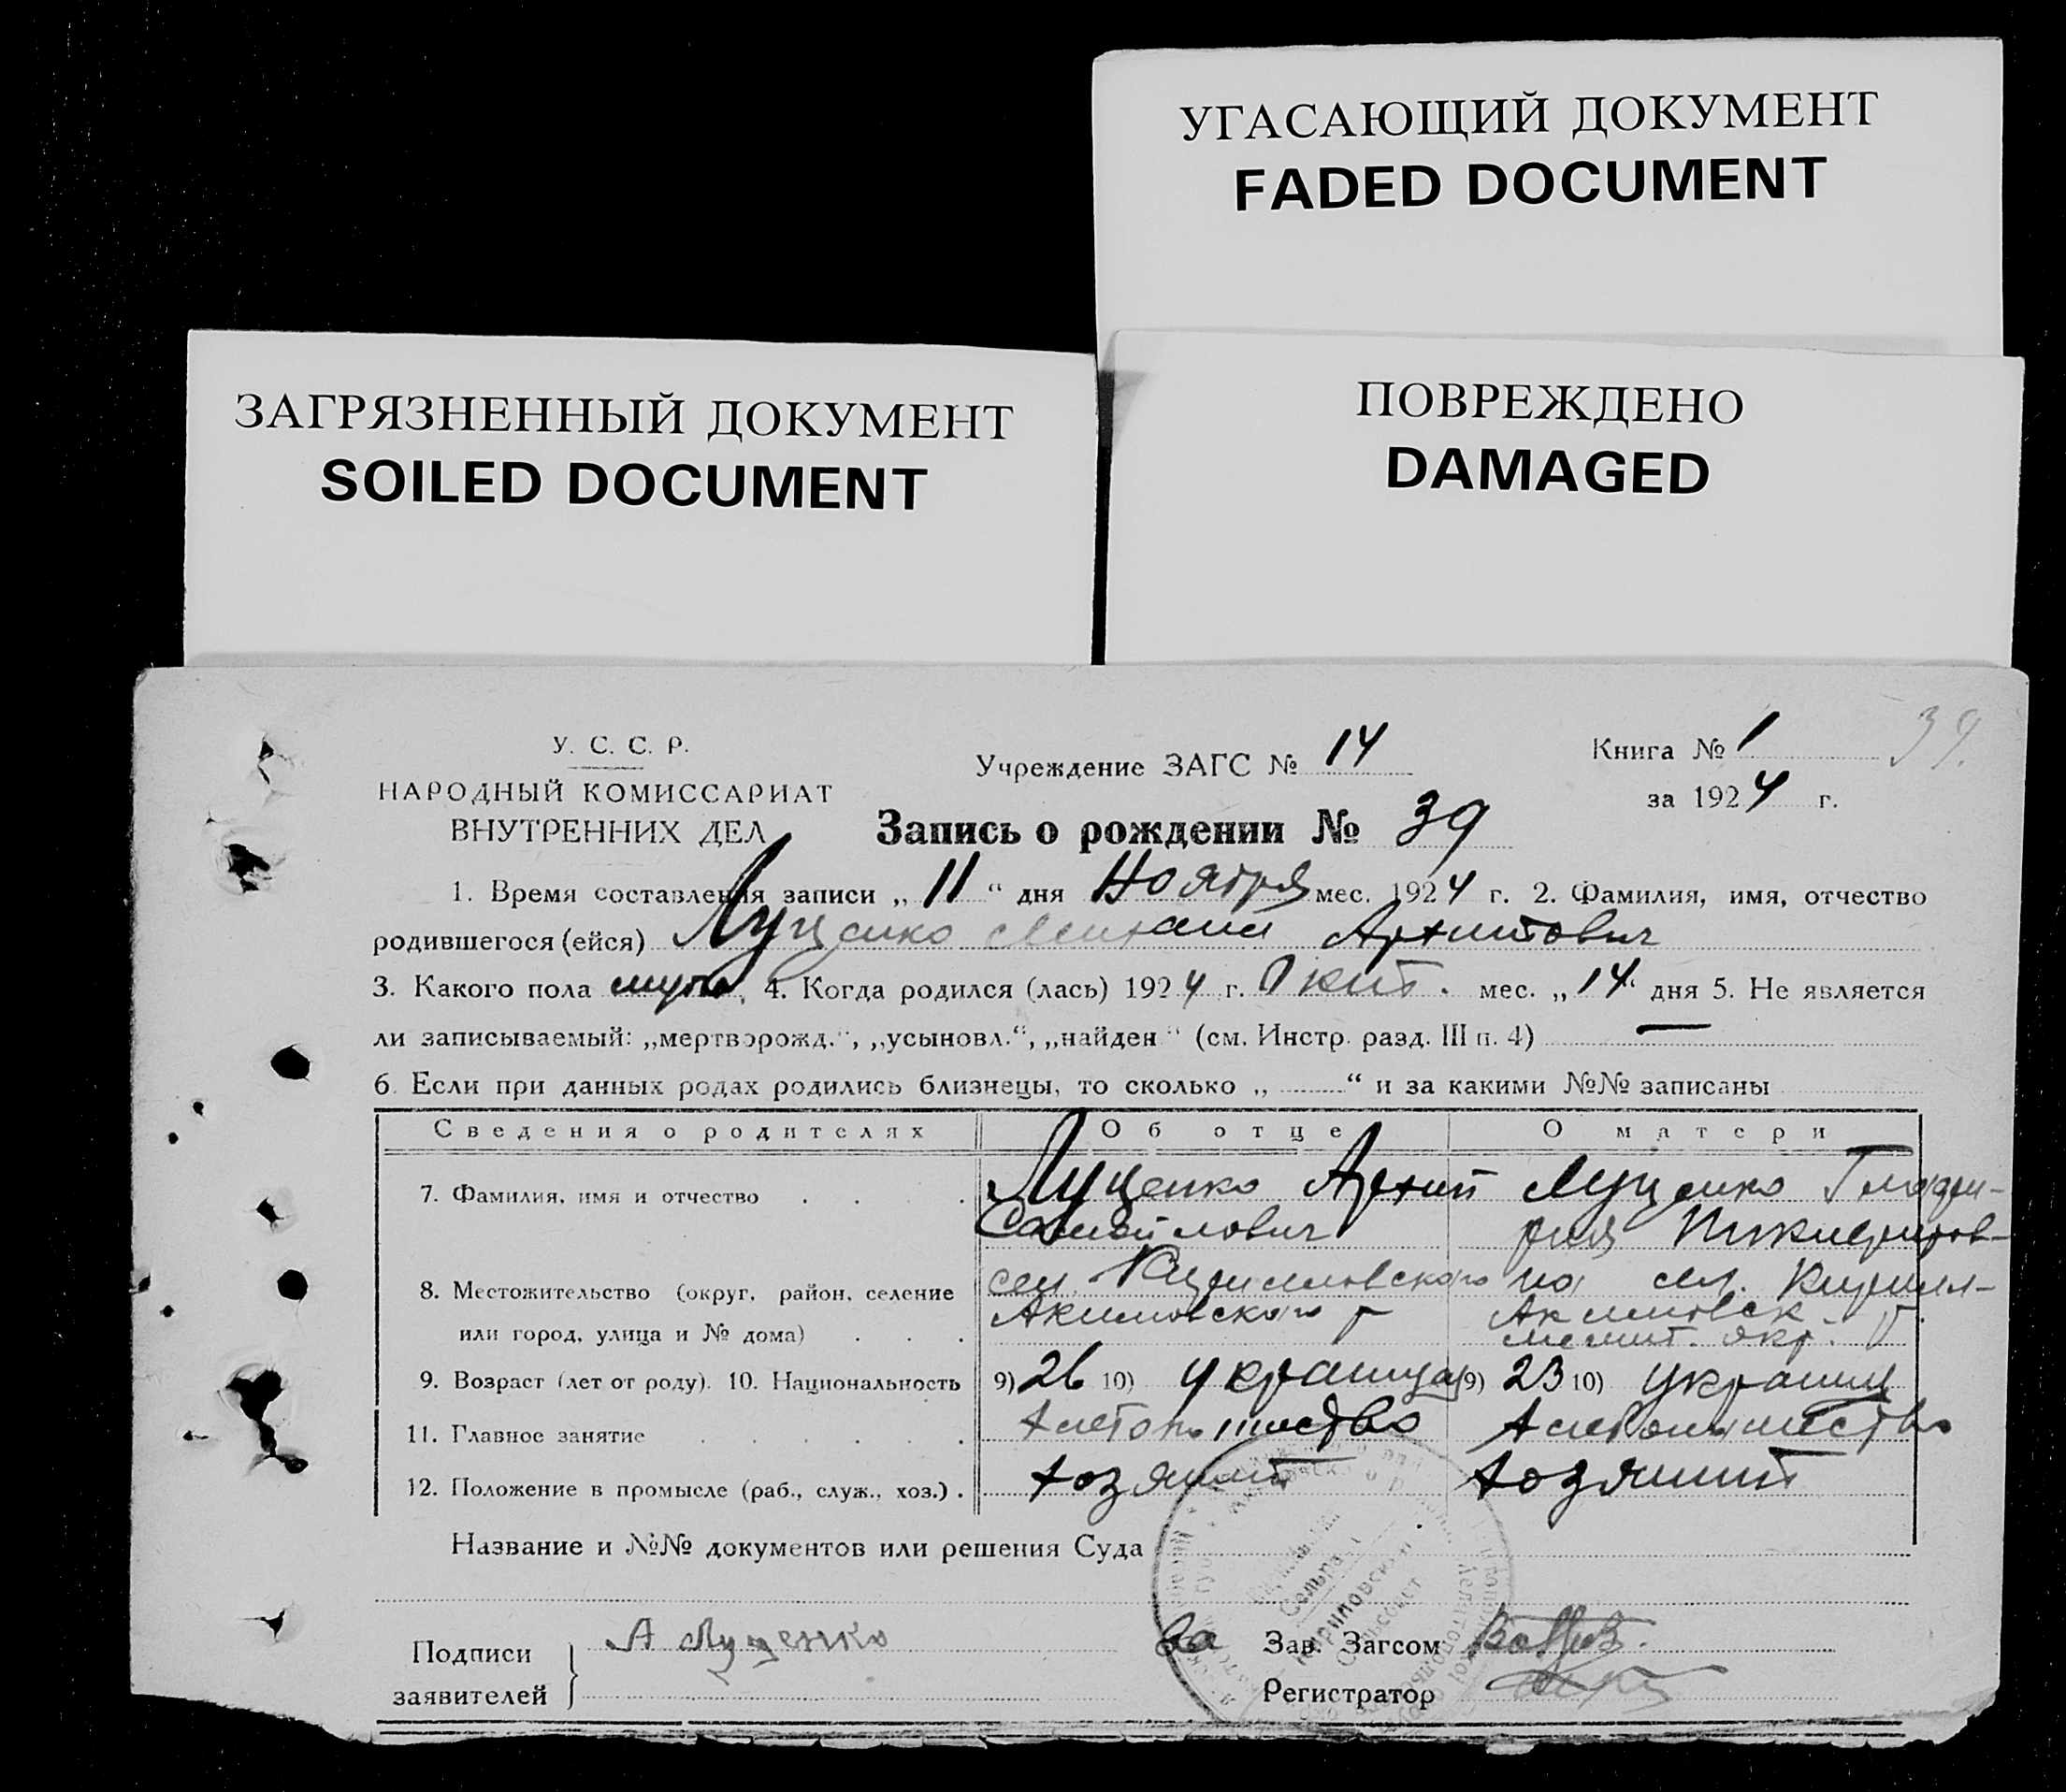 УГАСАЮЩИЙ ДОКУМЕНТ
FADED DOCUMENT
ЗАГРЯЗНЕННЫЙ ДОКУМЕНТ
SOILED DOCUMENT
ПОВРЕЖДЕНО
DAMAGED
У. С. С. Р.
НАРОДНЫЙ КОМИССАРИАТ
ВНУТРЕННИХ ДЕЛ
Учреждение ЗАГС № 14
Книга № 1
39.
за 1924 г.
Запись о рождении № 39
1. Время составления записи „ 11 “ дня Ноября мес. 1924 г. 2. Фамилия, имя, отчество
родившегося (ейся) Луценко Михаил Архипович
3. Какого пола муж. 4. Когда родился (лась) 1924 г. Окт. мес. „14“ дня 5. Не является
ли записываемый: „мертворожд.“, „усыновл.“, „найден“ (см. Инстр. разд. III п. 4) —
6. Если при данных родах родились близнецы, то сколько „ “ и за какими №№ записаны
Сведения о родителях Об отце О матери
7. Фамилия, имя и отчество Луценко Архип Луценко
Самойлович
8. Местожительство (округ, район, селение сел. Кирилловского на сел. Кирилл-
или город, улица и № дома) Акимовского р Акимовск. р.
Мелит. окр.
9. Возраст (лет от роду). 10. Национальность 9) 26 10) 9) 23 10)
11. Главное занятие хлебопашество хлебопашество
12. Положение в промысле (раб., служ., хоз.) . хозяин хозяин
Название и №№ документов или решения Суда
Подписи заявителей А Луценко
За Зав. Загсом
Регистратор